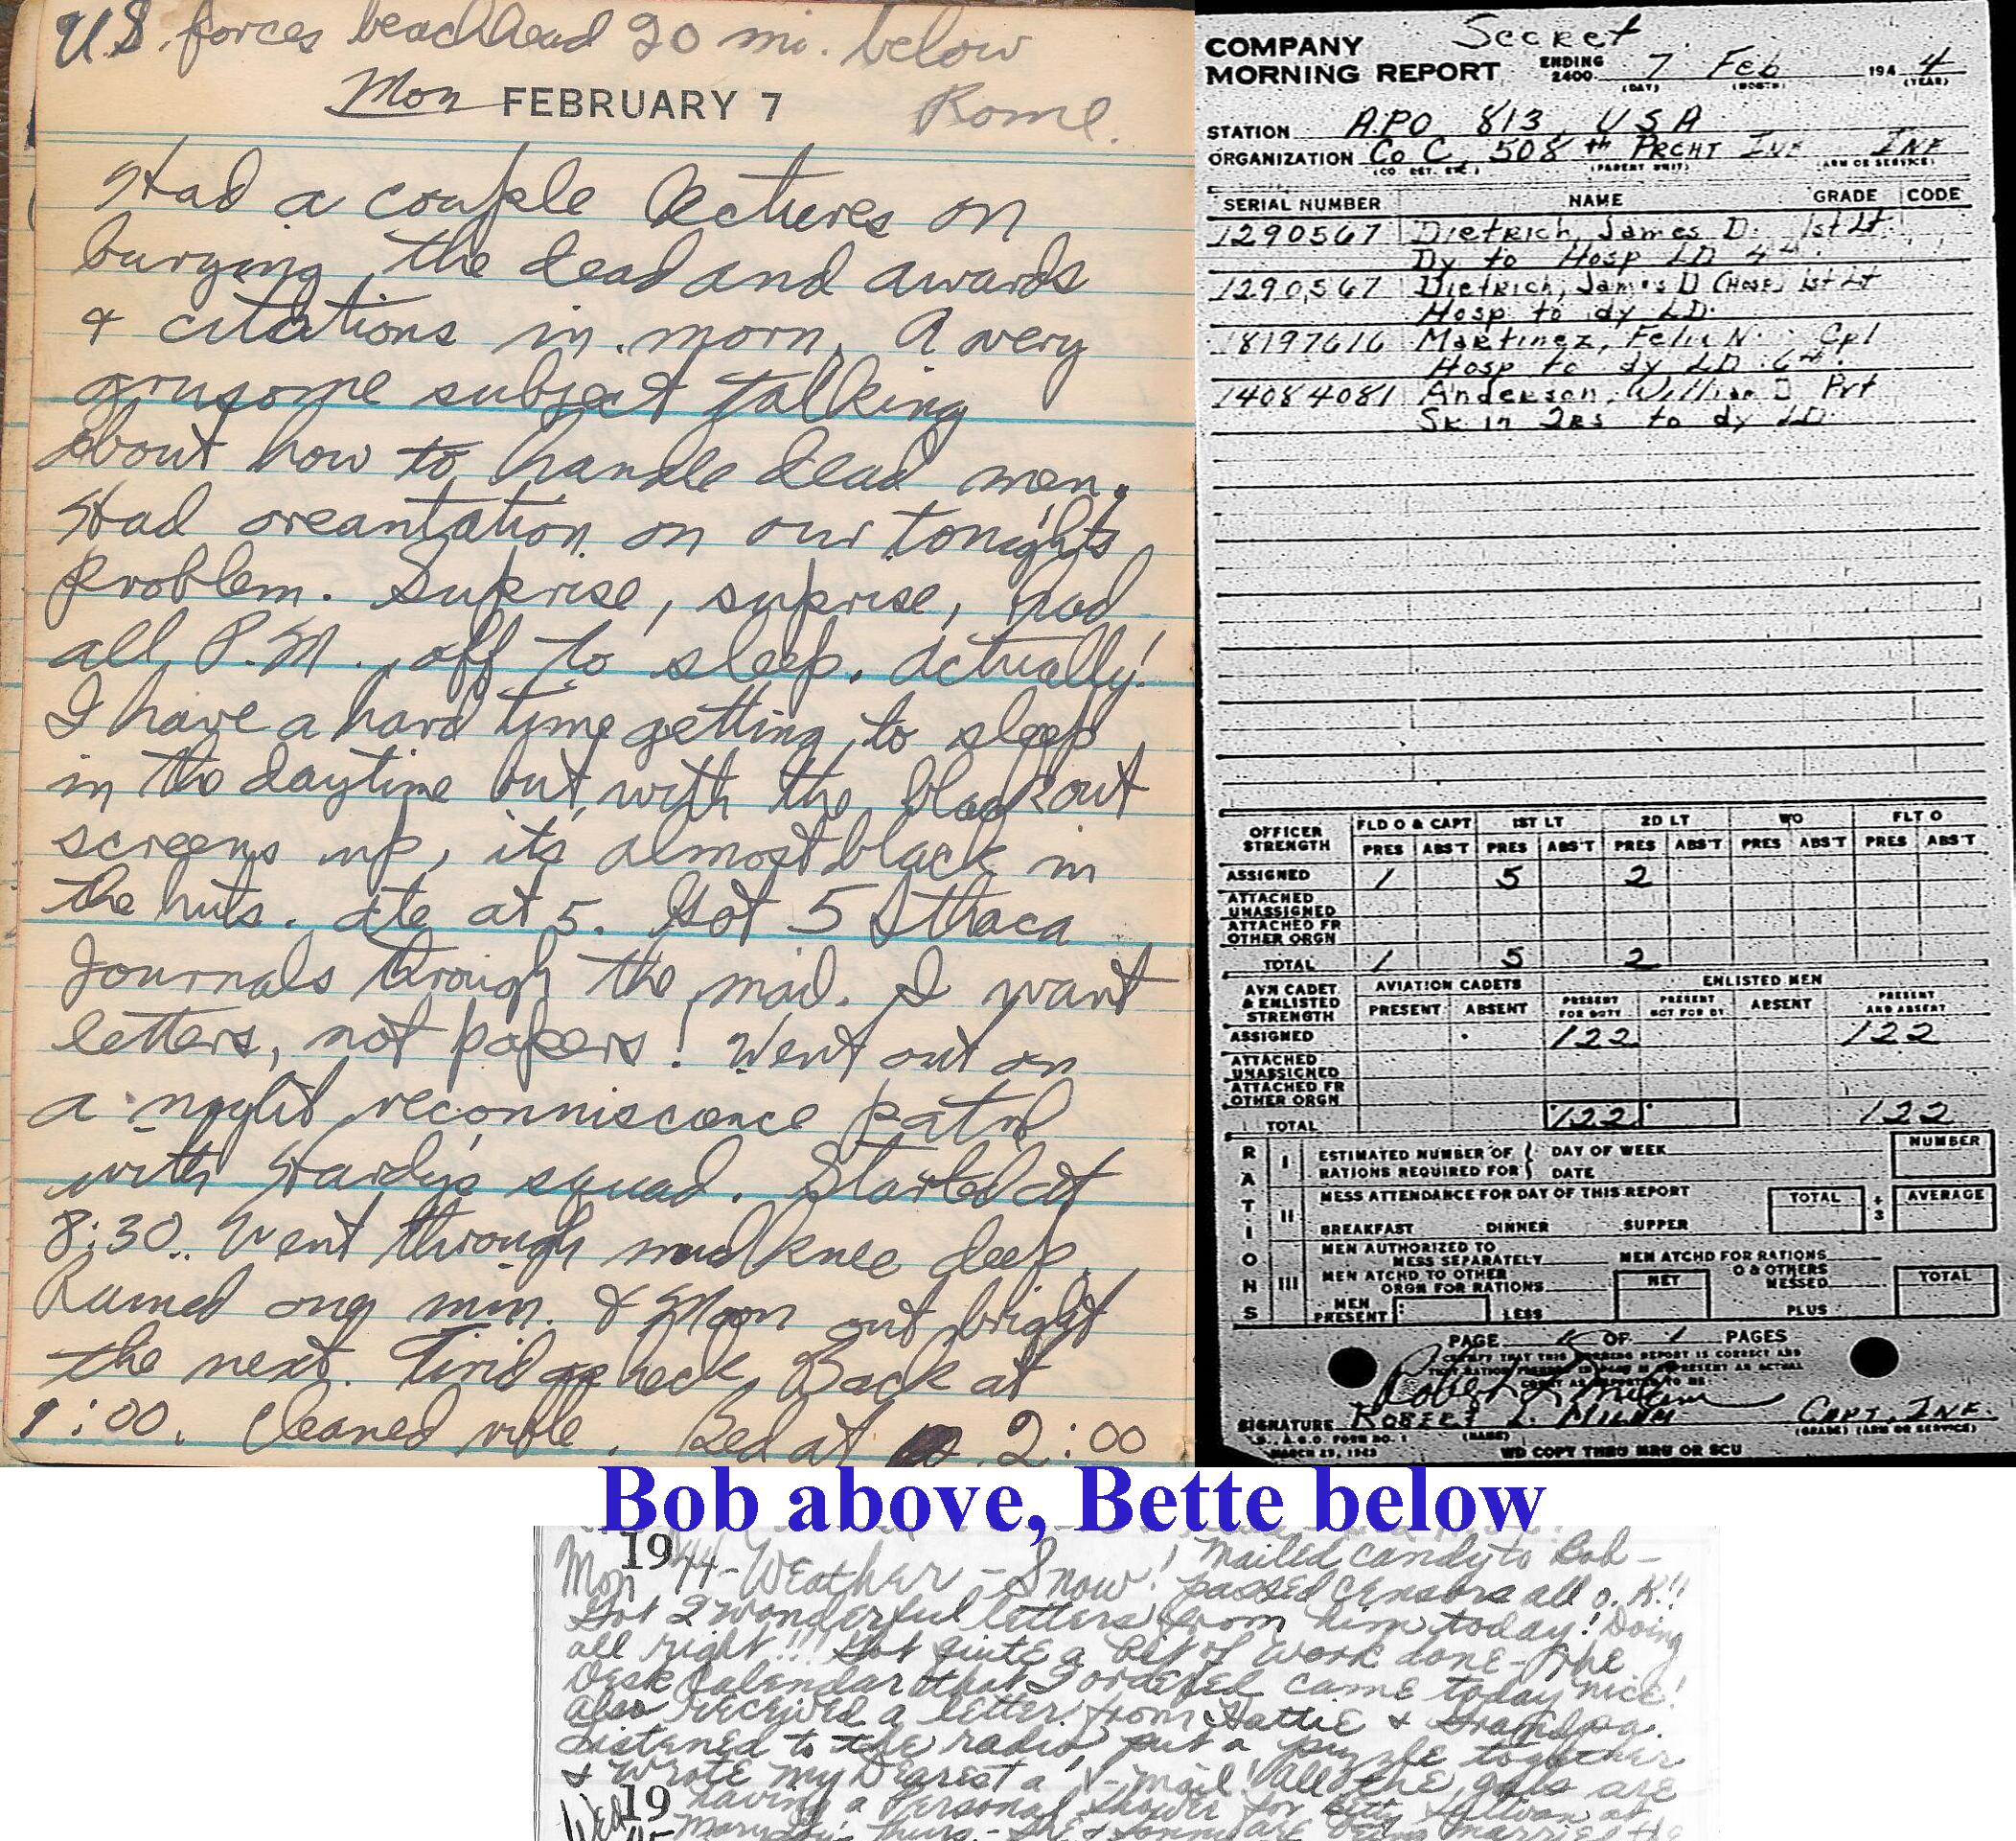 U.S. forces beachhead 20 mi. below
Rome.
Mon FEBRUARY 7
Had a couple lectures on
burying the dead and awards
& citations in morn. A very
grusome subject talking
about how to handle dead men.
Had oreantation on our tonights
problem. Suprise, suprise, had
all P.M. off to sleep. Actually!
I have a hard time getting to sleep
in the daytime but with the blackout
screens up, its almost black in
the huts. Ate at 5. Got 5 Ithaca
Journals through the mail. I want
letters, not papers! Went out on
a night reconniscence patrol
with Hardy's squad. Started at
8:30. Went through mud knee deep.
Rained one min. & Moon out bright
the next. Tired as heck. Back at
1:00. Cleaned rifle. Bed at 2:00
Secret
COMPANY
MORNING REPORT ENDING 2400 7 Feb 194 4
(DAY) (MONTH) (YEAR)
STATION APO 813, USA
ORGANIZATION Co C, 508th PRCHT INF INF
(CO. DET. ETC.) (PARENT UNIT) (ARM OR SERVICE)
SERIAL NUMBER NAME GRADE CODE
1290567 Dietrich, James D. 1st Lt.
Dy to Hosp LD
1290567 Dietrich, James D (Hosp) 1st Lt
Hosp to dy LD.
18197616 Martinez, Felix N. Cpl
Hosp to dy LD
14084081 Anderson, William D Pvt
Sk in Qrs to dy LD
OFFICER STRENGTH FLD O & CAPT 1ST LT 2D LT WO FLT O
PRES ABS'T PRES ABS'T PRES ABS'T PRES ABS'T PRES ABS'T
ASSIGNED 1 5 2
ATTACHED
UNASSIGNED
ATTACHED FR
OTHER ORGN
TOTAL 1 5 2
AVN CADET & ENLISTED STRENGTH AVIATION CADETS ENLISTED MEN
PRESENT ABSENT PRESENT FOR DUTY PRESENT NOT FOR DY ABSENT PRESENT AND ABSENT
ASSIGNED 122 122
ATTACHED
UNASSIGNED
ATTACHED FR
OTHER ORGN
TOTAL 122 122
RATIONS
I ESTIMATED NUMBER OF RATIONS REQUIRED FOR { DAY OF WEEK DATE NUMBER
II MESS ATTENDANCE FOR DAY OF THIS REPORT TOTAL ÷ 3 AVERAGE
BREAKFAST DINNER SUPPER
III MEN AUTHORIZED TO MESS SEPARATELY MEN ATCHD FOR RATIONS & OTHERS MESSED
MEN ATCHD TO OTHER ORGN FOR RATIONS NET TOTAL
MEN PRESENT LESS PLUS
PAGE 1 OF 1 PAGES
SIGNATURE ROBERT L. MILAM CAPT. INF.
(NAME) (GRADE) (ARM OR SERVICE)
W.D., A.G.O. FORM NO. 1
MARCH 29, 1943 WD COPY THRU MRU OR SCU
Bob above, Bette below
1944 - Weather - Snow! Mailed candy to Bob -
Mon passed censors all o.K!!
Got 2 wonderful letters from him today! Doing
all right!!! Got quite a bit of work done - The
Desk Calendar that I ordered came today nice!
Also received a letter from Hattie & Grandpa.
Listened to the radio, put a puzzle together
& wrote my Dearest a V-mail! All the gals are
19 having a Personal Shower for Betty Sullivan at
Wed